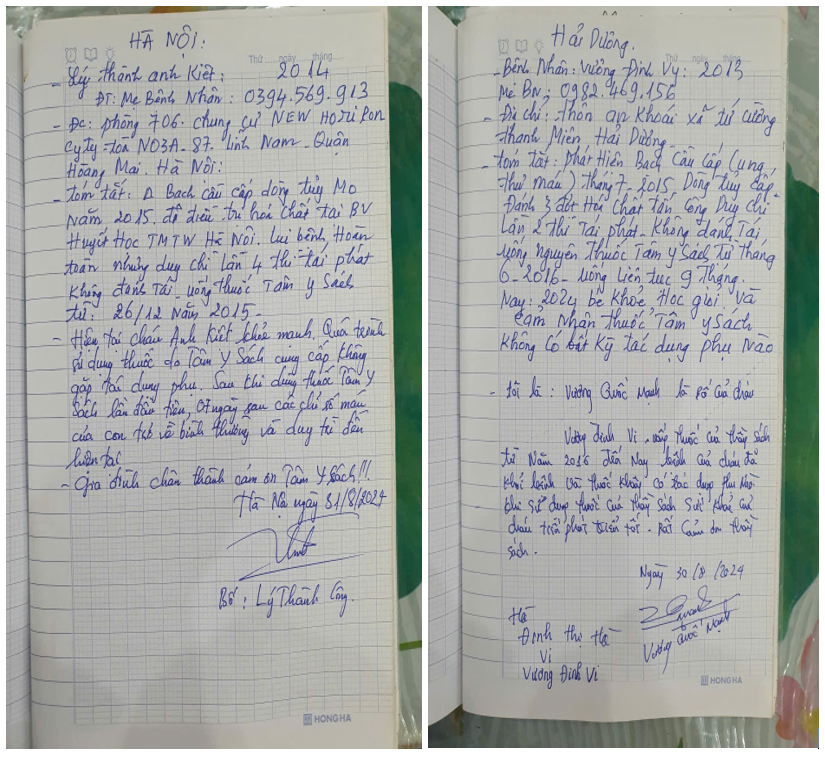 HÀ NỘI:
Thứ ngày tháng
- Lý thành anh Kiệt: 2014
ĐT: Mẹ Bệnh Nhân: 0394.569.913
- Đc: phòng 706. chung cư NEW HORIRON
Cyty - tòa NO3A - 87. Lĩnh Nam - Quận
Hoàng Mai. Hà Nội:
- tóm tắt: Δ Bạch cầu cấp dòng tủy Mo
Năm 2015. đã điều trị hoá chất tại BV
Huyết Học TMTW Hà Nội. Lui bệnh Hoàn
toàn nhưng duy chì Lần 4 thì tái phát
Không đánh Tải - uống thuốc Tâm y Sách
từ: 26/12 Năm 2015 -
- Hiện tại cháu Anh Kiệt khỏe mạnh. Quá trình
sử dụng thuốc do Tâm Y Sách cung cấp không
gặp tác dụng phụ. Sau khi dùng thuốc Tâm Y
Sách lần đầu tiên, 07 ngày sau các chỉ số máu
của con trở về bình thường và duy trì đến
hiện tại
- Gia đình chân thành cảm ơn Tâm Y Sách!!!
Hà Nội ngày 31/8/2024
Bố: Lý Thành Công.
HONG HA
Hải Dương.
Thứ ngày tháng
- Bệnh Nhân: Vương Đình Vy: 2013
Mẹ BN: 0982.469.156
- Địa chỉ: Thôn an Khoái xã tứ cường
thanh Miện, Hải Dương.
- tóm tắt: phát Hiện Bạch Cầu Cấp (ung
thư máu) tháng 7-2015. Dòng tuỷ cấp.
Đánh 3 đợt Hoá Chất tấn Công Duy chì
Lần 2 thì Tái phát. Không đánh Tải
uống nguyên Thuốc Tâm y Sách Từ tháng
6-2016 - uống Liên tục 9 tháng.
Nay: 2024 bé Khỏe Học giỏi. Và
cảm Nhận thuốc Tâm y Sách
Không Có bất Kỳ tác dụng phụ Nào
- tôi là: Vương Quốc Mạnh là bố của cháu
Vương đình Vi. uống thuốc của thầy sách
từ Năm 2016 đến Nay bệnh của cháu đã
khỏi bệnh và thuốc không có tác dụng phụ Nào
khi sử dụng thuốc của thầy Sách Sức khoẻ của
cháu phát triển tốt. Rất Cảm ơn thầy
sách.
Ngày 30/8/2024
Hà
Đinh thị Hà
Vi
Vương Đình Vi
Vương Quốc Mạnh
HONG HA